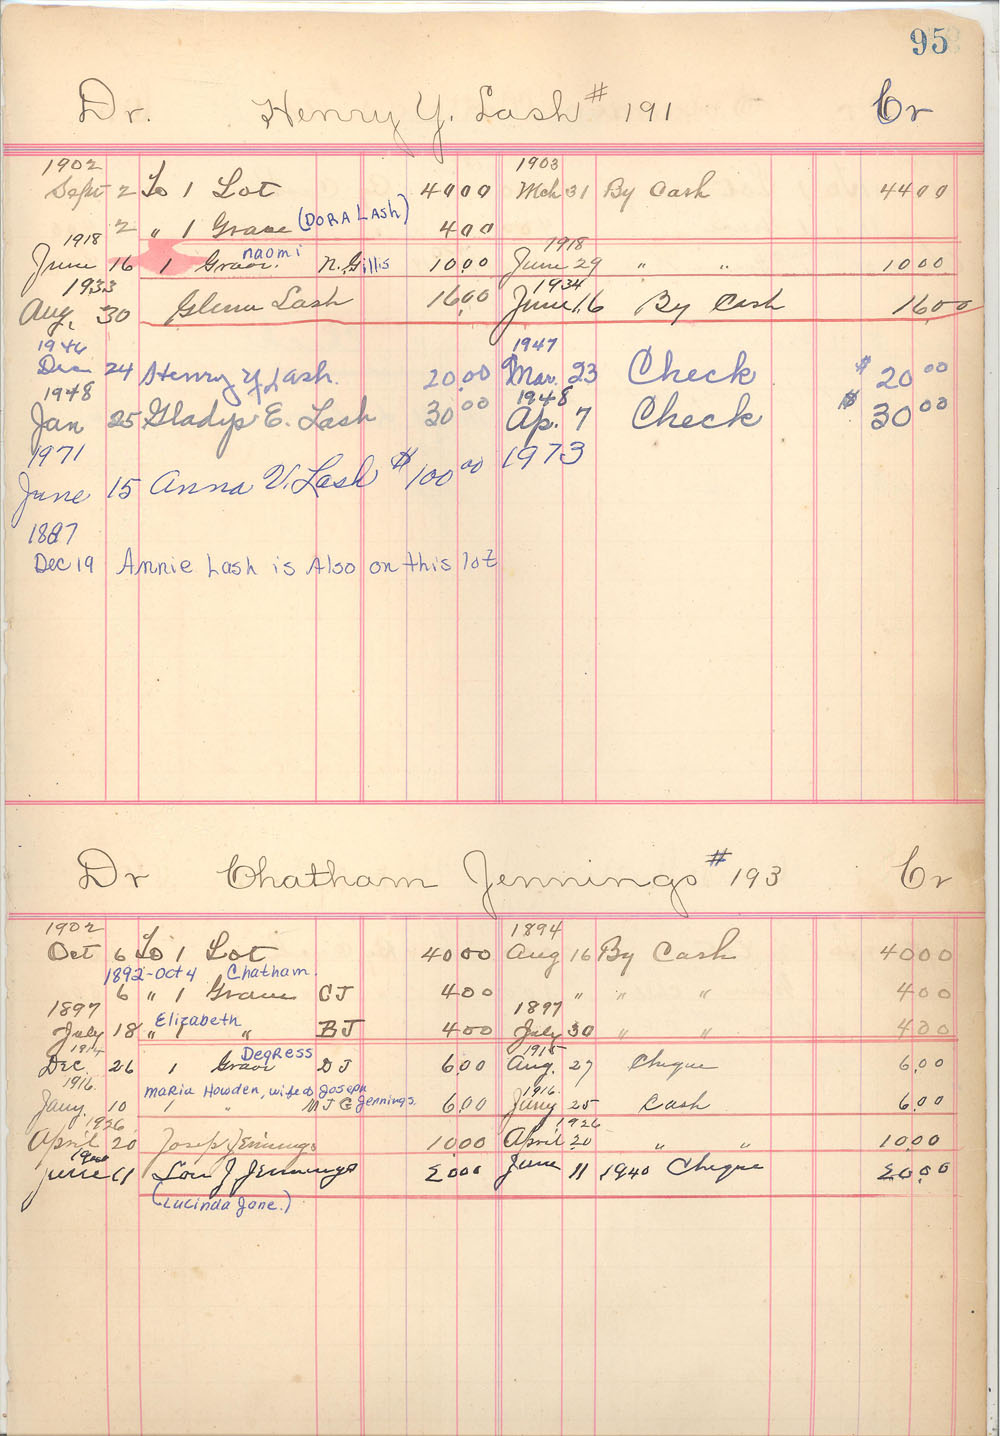 95
Dr. Henry Y. Lash # 191 Cr
1902 1903
Sept 2 To 1 Lot 40 00 Mch 31 By Cash 44 00
2 " 1 Grave (DORA LASH) 4 00
1918 naomi 1918
June 16 1 Grave. N. Gillis 10 00 June 29 " " 10 00
1933 1934
Aug. 30 Glenn Lash 16 00 June 16 By Cash 16 00
1946 1947
Dec 24 Henry Y Lash. 20.00 Mar. 23 Check $ 20 00
1948 1948
Jan 25 Gladys E. Lash 30 00 Ap. 7 Check $ 30 00
1971 1973
June 15 Anna V. Lash $ 100.00
1887
Dec 19 Annie Lash is Also on this lot
Dr Chatham Jennings # 193 Cr
1902 1894
Oct 6 To 1 Lot 40 00 Aug 16 By Cash 40 00
1892-Oct 4 Chatham.
6 " 1 Grave CJ 4 00 " " " 4 00
1897 Elizabeth 1897
July 18 " 1 " BJ 4 00 July 30 " " 4 00
1914 Degress 1915
Dec. 26 1 Grave D J 6 00 Aug. 27 Cheque 6.00
1916. Maria Howden, wife of Joseph 1916.
Jany. 10 1 " M J G Jennings. 6.00 Jany 25 Cash 6.00
1926 1926
April 20 Josep Jennings 10 00 April 20 " " 10 00
June 11 Lou J Jennings 20 00 June 11, 1940 Cheque 20.00
(Lucinda Jane.)